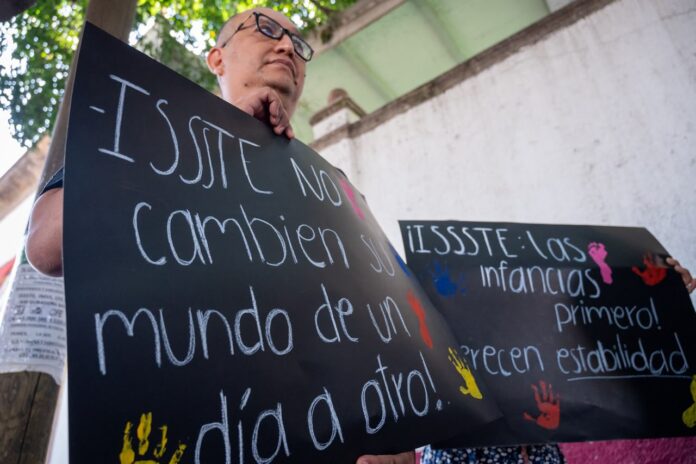 -ISSSTE NO
cambien su
mundo de un
día a otro!
¡ISSSTE: las
infancias
primero!
erecen estabilidad